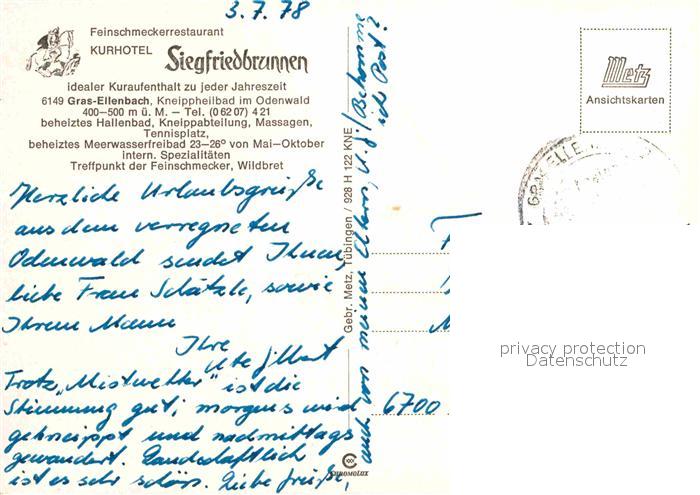 3.7.78
Feinschmeckerrestaurant
KURHOTEL Siegfriedbrunnen
idealer Kuraufenthalt zu jeder Jahreszeit
6149 Gras-Ellenbach, Kneippheilbad im Odenwald
400–500 m ü. M. – Tel. (0 62 07) 4 21
beheiztes Hallenbad, Kneippabteilung, Massagen,
Tennisplatz,
beheiztes Meerwasserfreibad 23–26° von Mai–Oktober
intern. Spezialitäten
Treffpunkt der Feinschmecker, Wildbret
Herzliche Urlaubsgrüße
aus dem verregneten
Odenwald sendet Ihnen,
liebe Frau Schätzle, sowie
Ihrem Mann
Ihre
Ute Gilbert
Trotz „Mistwetter" ist die
Stimmung gut; morgens wird
gekneippt und nachmittags
gewandert. Landschaftlich
ist es sehr schön. Liebe Grüße,
auch von meinen Eltern, Bekomme
ich Post?
Gebr. Metz, Tübingen / 928 H 122 KNE
CHROMOLUX
Metz
Ansichtskarten
6700
privacy protection
Datenschutz